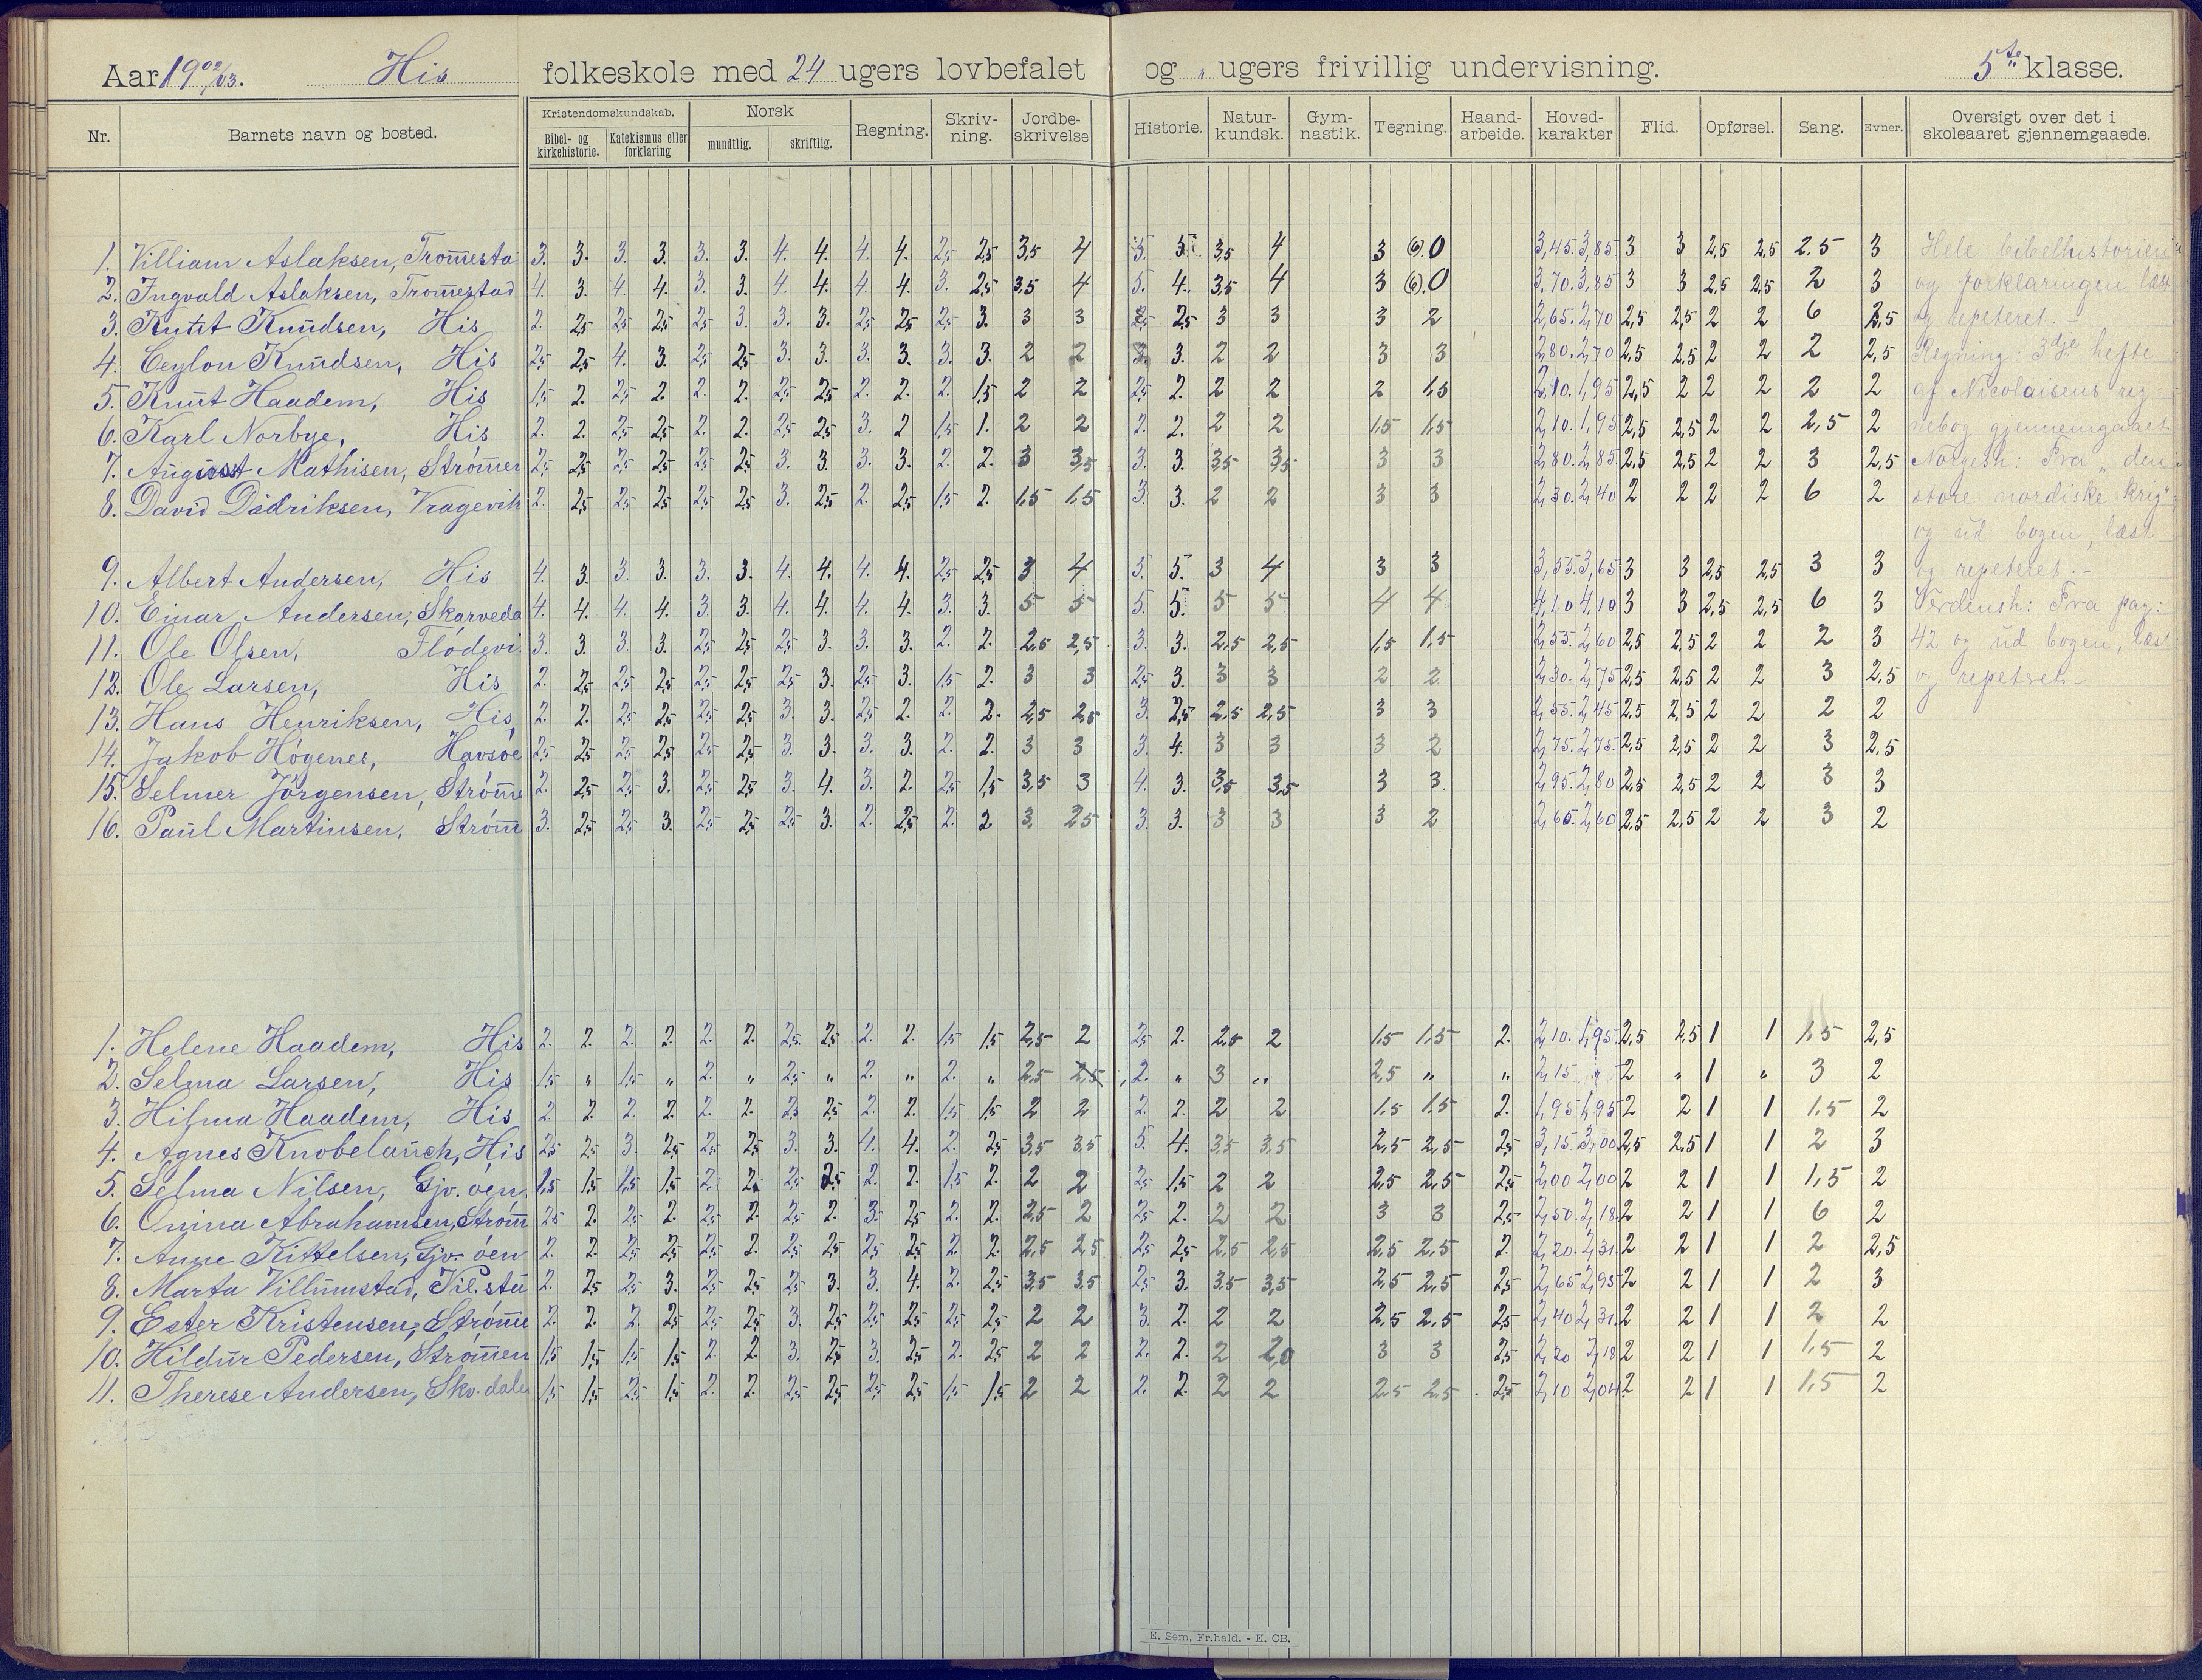 Aar 1902/03. His folkeskole med 24 ugers lovbefalet og „ ugers frivillig undervisning. 5te klasse.
Nr. Barnets navn og bosted. Kristendomskundskab. Norsk Regning. Skriv-ning. Jordbe-skrivelse Historie. Natur-kundsk. Gym-nastik. Tegning. Haand-arbeide. Hoved-karakter Flid. Opførsel. Sang. Evner. Oversigt over det i skoleaaret gjennemgaaede.
Bibel- og kirkehistorie. Katekismus eller forklaring mundtlig. skriftlig.
1. Villiam Aslaksen, Tromesta 3. 3. 3. 3. 3. 3. 4. 4. 4. 4. 2,5 2,5 3,5 4 5. 5. 3,5 4 3 (6). 0 3,45. 3,85. 3 3 2,5 2,5 2.5 3 Hele bibelhistorien
2. Ingvald Aslaksen, Tromestad 4. 3. 4. 4. 3. 3. 4. 4. 4. 4. 3. 2,5 3,5 4 5. 4. 3,5 4 3 (6). 0 3,70. 3,85 3 3 2,5 2,5 2 3 og forklaringen læst
3. Knut Knudsen, His 2. 2,5 2,5 2,5 2,5 3. 3. 3. 2,5 2,5 2,5 3. 3 3 2,5 3 3 3 2 2,65. 2,70 2,5 2,5 2 2 6 2,5 og repeteret. -
4. Ceylon Knudsen, His 2,5 2,5 4. 3. 2,5 2,5 3. 3. 3. 3. 3. 3. 2 2 3. 3. 2 2 3 3 2,80. 2,70 2,5 2,5 2 2 2 2,5 Regning: 3dje hefte
5. Knut Haadem, His 1,5 2. 2,5 2. 2. 2. 2,5 2,5 2. 2. 2. 1,5 2 2 2,5 2. 2 2 2 1,5 2,10. 1,95 2,5 2 2 2 2 2 af Nicolaisens reg-
6. Karl Norbye, His 2. 2. 2,5 2,5 2. 2. 2,5 2,5 3. 2 1,5 1. 2 2 2. 2. 2 2 1,5 1,5 2,10. 1,95 2,5 2,5 2 2 2,5 2 nebog gjennemgaaet
7. August Mathisen, Strømen 2,5 2,5 2,5 2,5 2,5 2,5 3. 3. 3. 3. 2. 2. 3 3,5 3. 3. 3,5 3,5 3 3 2,80. 2,85 2,5 2,5 2 2 3 2,5 Norgesh: Fra „den
8. David Didriksen, Vragevik 2. 2,5 2,5 2,5 2,5 2,5 3. 2,5 2. 2,5 1,5 2. 1,5 1,5 3. 3. 2 2 3 3 2,30. 2,40 2 2 2 2 6 2 store nordiske krig"
og ud bogen, læst
9. Albert Andersen, His 4. 3. 3. 3. 3. 3. 4. 4. 4. 4. 2,5 2,5 3 4 5. 5. 3 4 3 3 3,55. 3,65 3 3 2,5 2,5 3 3 og repeteret. -
10. Einar Andersen, Skarveda 4. 4. 4. 4. 3. 3. 4. 4. 4. 4. 3. 3. 5 5 5. 5. 5 5 4 4 4,10 4,10 3 3 2,5 2,5 6 3 Verdensh: Fra pag:
11. Ole Olsen, Flødevi 3. 3. 3. 3. 2,5 2,5 2,5 3. 3. 3. 2. 2. 2,5 2,5 3. 3. 2,5 2,5 1,5 1,5 2,55. 2,60 2,5 2,5 2 2 2 3 42 og ud bogen, læst
12. Ole Larsen, His 2. 2,5 2,5 2,5 2,5 2,5 2,5 3. 2,5 3. 1,5 2. 3 3 2,5 3. 3 3 2 2 2,30. 2,75 2,5 2,5 2 2 3 2,5 og repeteret. -
13. Hans Henriksen, His, 2. 2. 2,5 2,5 2,5 2,5 3. 3. 2,5 2. 2. 2. 2,5 2,5 3. 2,5 2,5 2,5 3 3 2,55. 2,45 2,5 2,5 2 2 2 2
14. Jakob Høgenes, Havsøe 2,5 2,5 2,5 2,5 2,5 2,5 3. 3. 3. 3. 2. 2. 3 3 3. 4. 3 3 3 2 2,75. 2,75. 2,5 2,5 2 2 3 2,5
15. Selmer Jörgensen, Strøme 2. 2,5 2,5 3. 2,5 2,5 3. 4. 3. 2. 2,5 1,5 3,5 3 4. 3. 3,5 3,5 3 3. 2,95. 2,80 2,5 2,5 2 2 3 3
16. Paul Martinsen, Strøm 3. 2,5 2,5 3. 2,5 2,5 2,5 3. 2. 2,5 2. 2 3. 2,5 3. 3. 3 3 3 2 2,65. 2,60 2,5 2,5 2 2 3 2
1. Helene Haadem, His 2. 2. 2. 2. 2. 2. 2,5. 2,5 2. 2. 1,5 1,5 2,5 2 2,5 2. 2,5 2 1,5 1,5 2. 2,10. 1,95. 2,5 2,5 1 1 1,5 2,5
2. Selma Larsen, His 1,5 „ 1,5 „ 2. „ 2,5 „ 2. „ 2. „ 2,5 2,5 2. „ 3 „ 2,5 „ „ 2,15 „ 2 „ 1 „ 3 2
3. Hilma Haadem, His 2. 2. 2. 2. 2. 2. 2,5 2,5 2. 2. 1,5 1,5 2 2 2. 2. 2 2 1,5 1,5 2. 1,95 1,95 2 2 1 1 1,5 2
4. Agnes Knobelauch, His 2,5 2,5 3. 2,5 2,5 2,5 3. 3. 4. 4. 2. 2,5 3,5 3,5 5. 4. 3,5 3,5 2,5 2,5 2,5 3,15 3,00 2,5 2,5 1 1 2 3
5. Selma Nilsen, Gjv. øen. 1,5 1,5 1,5 1,5 2. 2. 2,5 2,5 2. 2. 1,5 2. 2 2 2,5 1,5 2 2 2,5 2,5 2,5 2,00 2,00 2 2 1 1 1,5 2
6. Onina Abrahamsen, Strøm 2,5 2. 2,5 2. 2,5 2. 2,5 2. 3. 2,5 2. 2. 2,5 2 2,5 2. 2 2 3 3 2,5 2,50. 2,18. 2 2 1 1 6 2
7. Anne Kittelsen, Gjv. øen 2. 2. 2,5 2,5 2,5 2. 2,5 2,5 2,5 2,5 2. 2. 2,5 2,5 2,5 2,5 2,5 2,5 2,5 2,5 2. 2,20. 2,31. 2 2 1 1 2 2,5
8. Marta Villumstad, Kil.sta 2. 2,5 2,5 3. 2,5 2,5 2,5 3. 3. 4. 2. 2,5 3,5 3,5 2,5 3. 3,5 3,5 2,5 2,5 2,5 2,65 2,95 2 2 1 1 2 3
9. Ester Kristensen, Strøme 2. 2. 2. 2,5 2,5 2,5 3. 2,5 2,5 2,5 2,5 2,5 2 2 3. 2. 2 2 2,5 2,5 2,5 2,40 2,31. 2 2 1 1 2 2
10. Hildur Pedersen, Strømen 1,5 1,5 1,5 1,5 2. 2. 3. 2,5 3. 2,5 2. 2,5 2 2 2. 2. 2 2,0 3 3 2,5 2,20 2,18 2 2 1 1 1,5 2
11. Therese Andersen, Skv. dale 1,5 1,5 2,5 1,5 2. 2. 2,5 2,5 2,5 2,5 1,5 1,5 2 2 2. 2. 2 2 2,5 2,5 2,5 2,10 2,04 2 2 1 1 1,5 2
E. Sem, Fr.hald. - E. CB.